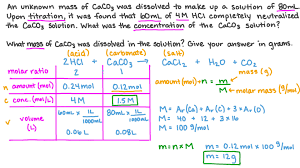 An unknown mass of CaCO₃ was dissolved to make up a solution of 80mL.
Upon titration, it was found that 60mL of 4M HCl completely neutralized
the CaCO₃ solution. What was the concentration of the CaCO₃ solution?
What mass of CaCO₃ was dissolved in the solution? Give your answer in grams.
(acid) (carbonate) (salt)
2HCl + CaCO₃ → CaCl₂ + H₂O + CO₂
molar ratio 2 1
n amount (mol) 0.24mol 0.12mol
c conc. (mol/L) 4M 1.5M
v volume (L) 60mL × 1L/1000mL 80mL × 1L/1000mL
0.06L 0.08L
mass (g)
amount (mol) n = m/M
molar mass (g/mol)
M = Ar(Ca) + Ar(C) + 3 × Ar(O)
M = 40 + 12 + 3 × 16
M = 100 g/mol
m = n × M m = 0.12 mol × 100 g/mol
m = 12g